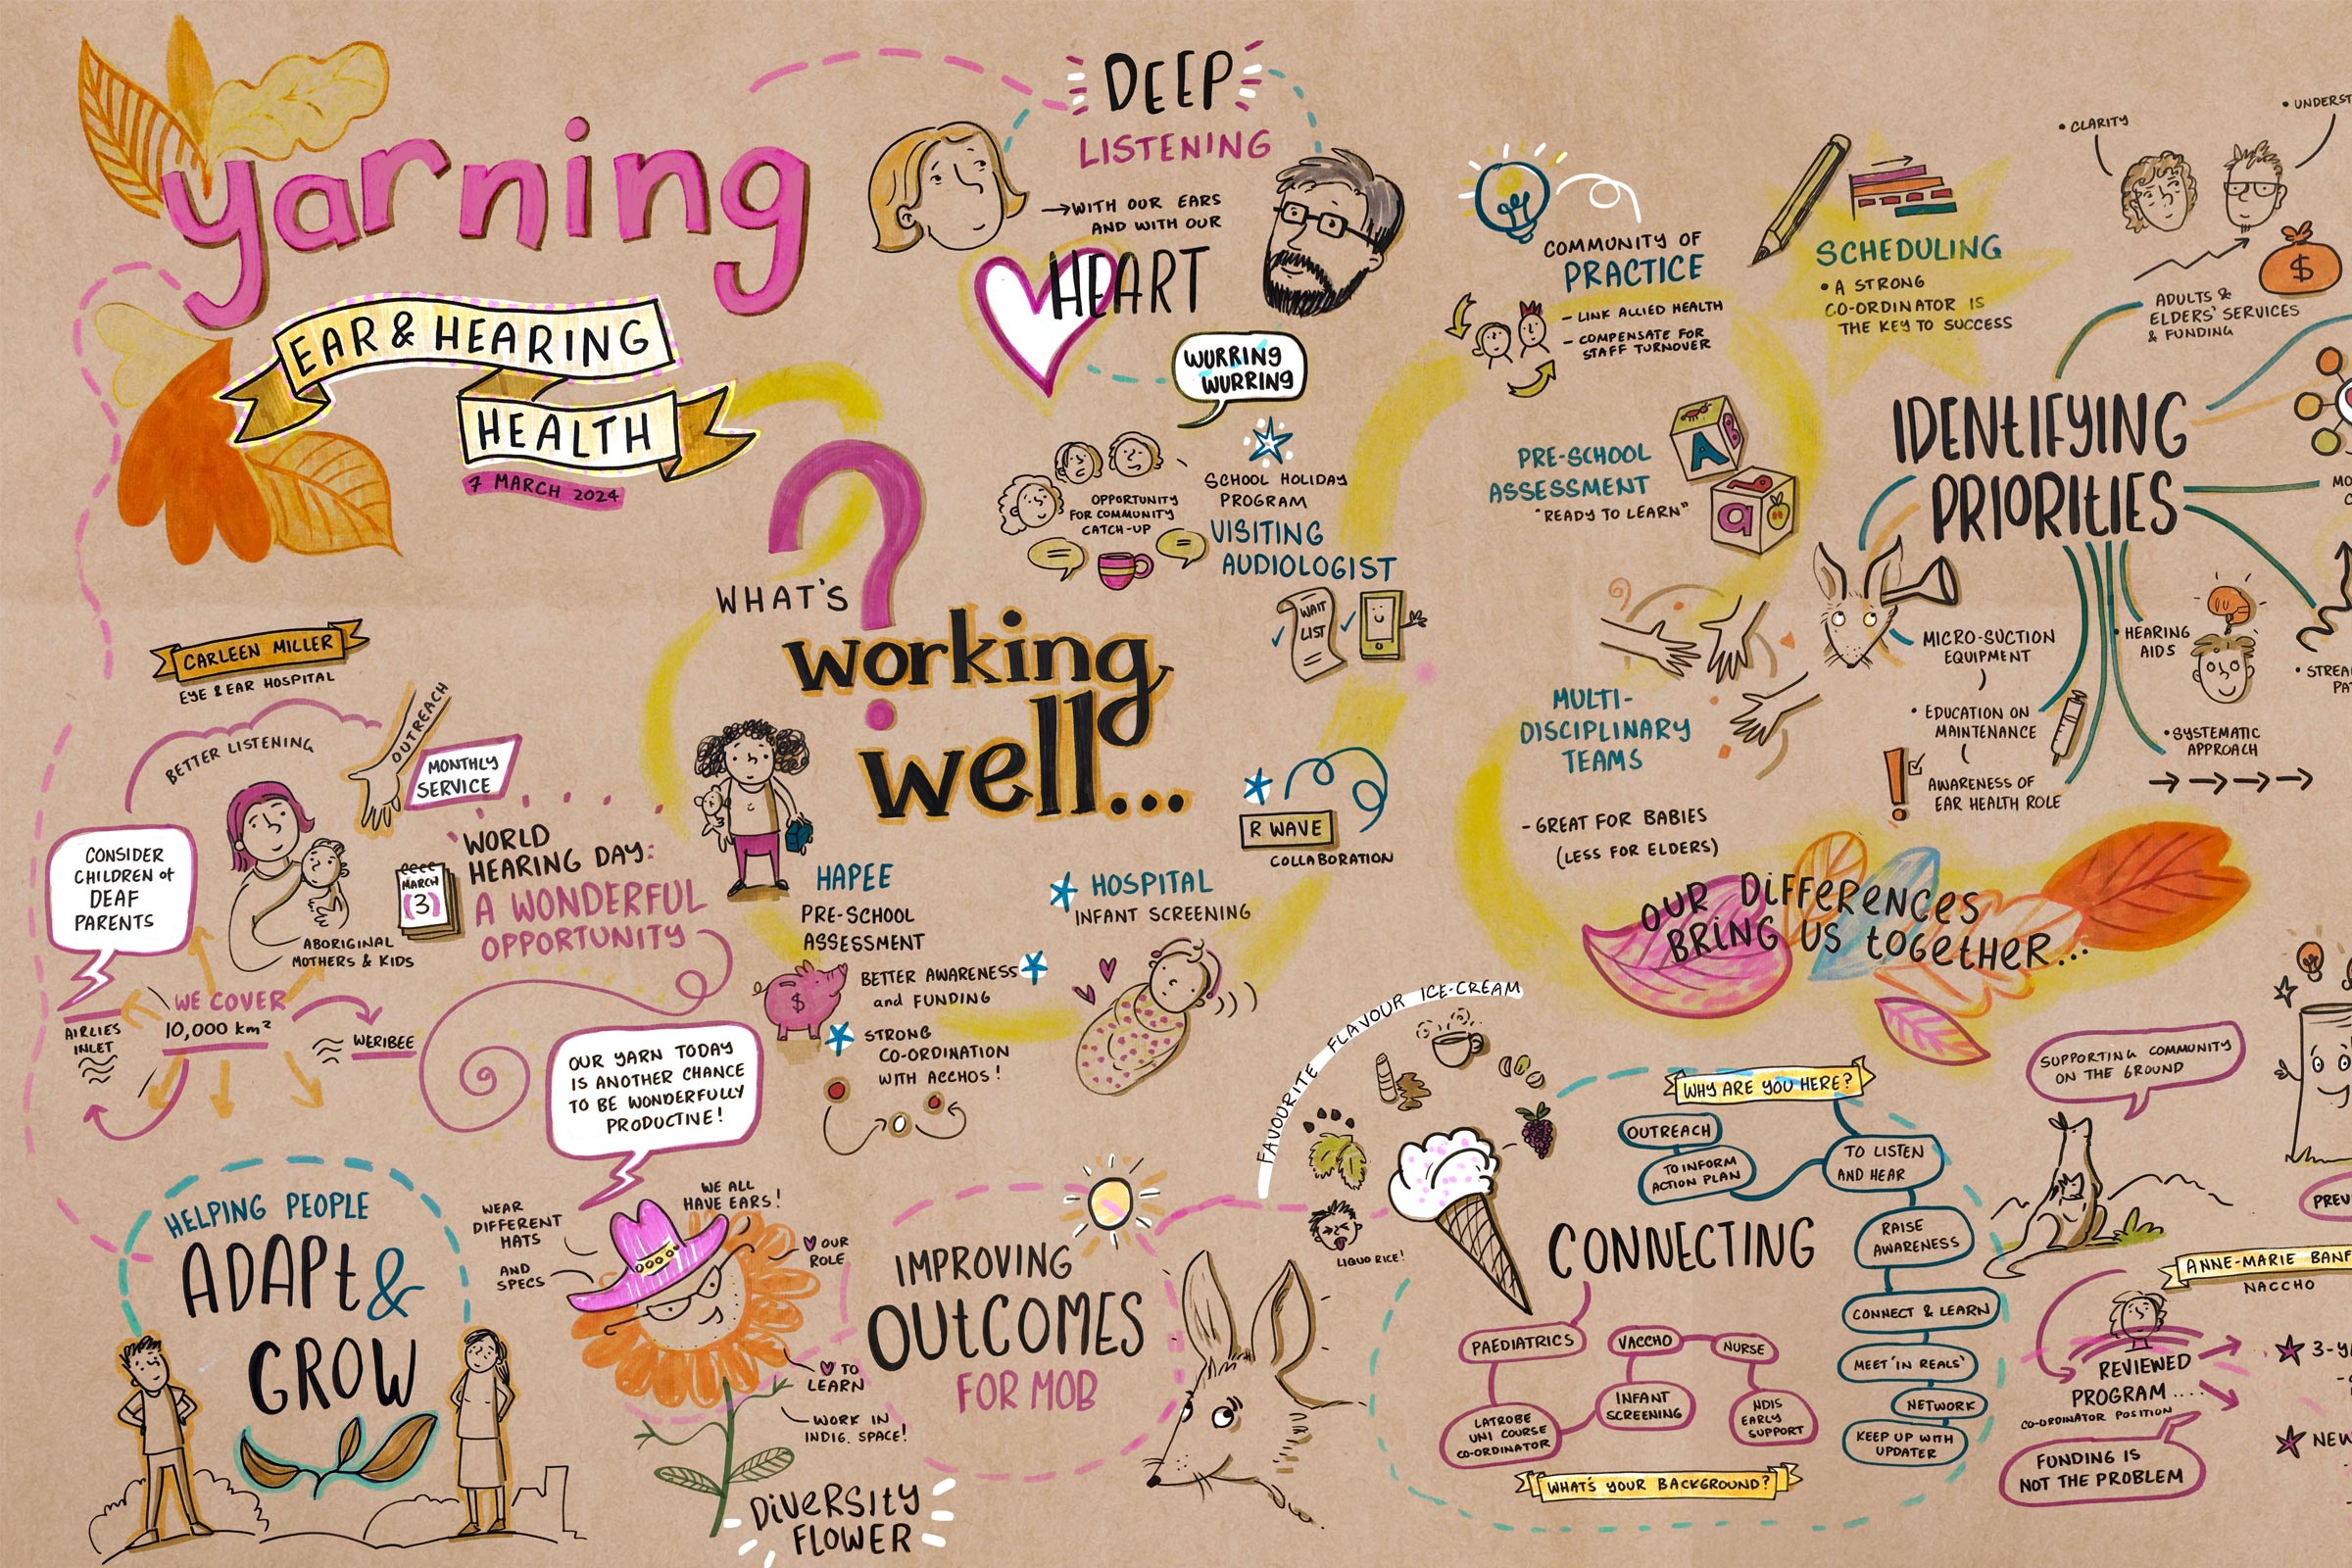 yarning
EAR & HEARING
HEALTH
7 MARCH 2024
DEEP
LISTENING
→WITH OUR EARS
AND WITH OUR
HEART
WURRING
WURRING
CARLEEN MILLER
EYE & EAR HOSPITAL
BETTER LISTENING
OUTREACH
MONTHLY
SERVICE
CONSIDER
CHILDREN of
DEAF
PARENTS
ABORIGINAL
MOTHERS & KIDS
MARCH
(3)
WORLD
HEARING DAY:
A WONDERFUL
OPPORTUNITY
WE COVER
10,000 km²
AIRLIES
INLET
WERIBEE
OUR YARN TODAY
IS ANOTHER CHANCE
TO BE WONDERFULLY
PRODUCTIVE!
HELPING PEOPLE
ADAPt &
GROW
WEAR
DIFFERENT
HATS
AND
SPECS
WE ALL
HAVE EARS!
♥ OUR
ROLE
♥ TO
LEARN
WORK IN
INDIG. SPACE!
DiVERSity
FLOWER
WHAT'S
working
well...
OPPORTUNITY
FOR COMMUNITY
CATCH-UP
SCHOOL HOLIDAY
PROGRAM
VISITING
AUDIOLOGIST
WAIT
LIST
R WAVE
COLLABORATION
HAPEE
PRE-SCHOOL
ASSESSMENT
HOSPITAL
INFANT SCREENING
$
BETTER AWARENESS
and FUNDING
STRONG
CO-ORDINATION
WITH ACCHOS!
COMMUNITY OF
PRACTICE
- LINK ALLIED HEALTH
- COMPENSATE FOR
STAFF TURNOVER
SCHEDULING
• A STRONG
CO-ORDINATOR IS
THE KEY TO SUCCESS
PRE-SCHOOL
ASSESSMENT
"READY TO LEARN"
A
B
a
MULTI-
DISCIPLINARY
TEAMS
- GREAT FOR BABIES
(LESS FOR ELDERS)
IDENtIFYING
PRIORItIES
• CLARITY
• UNDERST
$
ADULTS &
ELDERS' SERVICES
& FUNDING
MO
MICRO-SUCTION
EQUIPMENT
• EDUCATION ON
MAINTENANCE
AWARENESS OF
EAR HEALTH ROLE
• HEARING
AIDS
• SYSTEMATIC
APPROACH
• STREA
PAT
OUR DiFFeRENCes
BRiNG US toGetHER...
IMPROVING
OUtCOMES
FOR MOB
FAVOURITE FLAVOUR ICE-CREAM
LIQUORICE!
CONNECTING
WHY ARE YOU HERE?
OUTREACH
TO INFORM
ACTION PLAN
TO LISTEN
AND HEAR
RAISE
AWARENESS
CONNECT & LEARN
MEET 'IN REALS'
NETWORK
KEEP UP WITH
UPDATER
PAEDIATRICS
VACCHO
NURSE
LATROBE
UNI COURSE
CO-ORDINATOR
INFANT
SCREENING
NDIS
EARLY
SUPPORT
WHAT'S YOUR BACKGROUND?
SUPPORTING COMMUNITY
ON THE GROUND
PREV
ANNE-MARIE BANF
NACCHO
REVIEWED
PROGRAM....
CO-ORDINATOR POSITION
FUNDING IS
NOT THE PROBLEM
3-Y
NEW